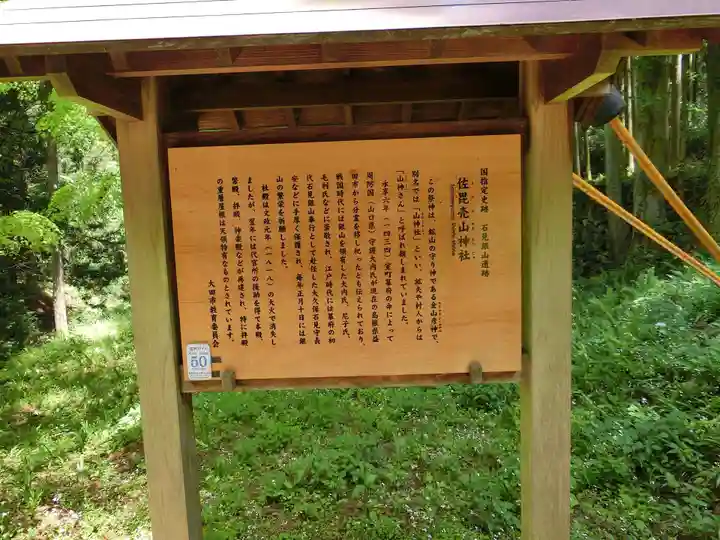 国指定史跡 石見銀山遺跡
佐毘売山神社
この祭神は、鉱山の守り神である金山彦神で、
別名では「山神社」といい、鉱夫や村人からは
「山神さん」と呼ばれ親しまれていました。
永享六年(一四三四)室町幕府の命によって
周防国(山口県)守護大内氏が現在の島根県益
田市から分霊を移し祀ったとも伝えられており、
戦国時代には銀山を領有した大内氏、尼子氏、
毛利氏などに崇敬され、江戸時代には幕府の初
代石見銀山奉行として赴任した大久保石見守長
安などに手厚く保護され、毎年正月十日には銀
山の繁栄を祈願しました。
社殿は文政元年(一八一八)の大火で消失し
ましたが、翌年には代官所の援助を得て本殿、
幣殿、拝殿、神楽殿などが再建され、特に拝殿
の重層屋根は天領特有なものとされています。
大田市教育委員会
50